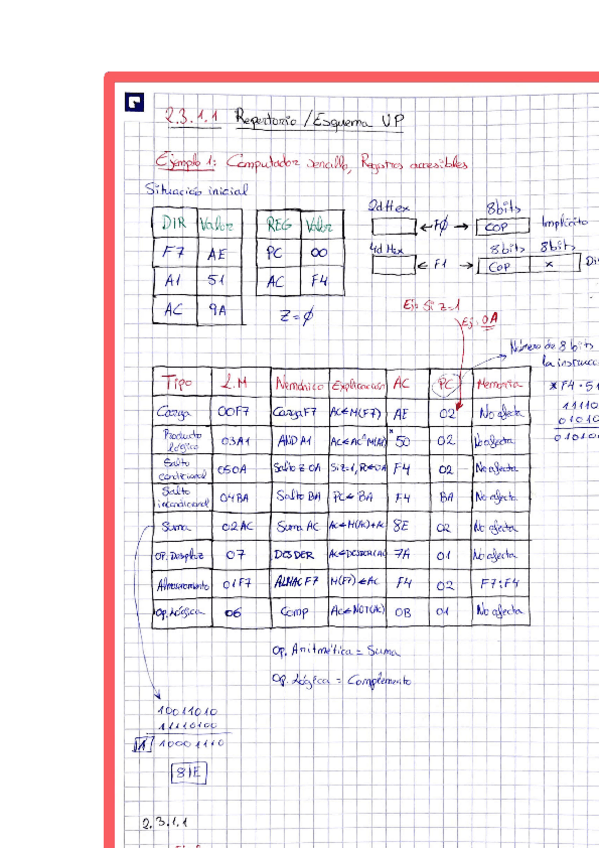 2.3.1.1 Repertorio / Esquema UP
Ejemplo 1: Computador sencillo, Registros accesibles
Situación inicial
DIR Valor
F7 AE
A1 51
AC 9A
REG Valor
PC 00
AC F4
Z=Ø
2dHex ← FØ → 8bits COP Implícito
4d Hex ← F1 → 8bits 8bits COP X
Ej: Si z=1
Ej: 0A
Número de 8 bits
la instrucc
Tipo L.M Nemónico Explicación AC PC Memoria
Carga 00F7 Carga F7 AC←M(F7) AE 02 No afecta
Producto lógico 03A1 AND A1 50 02 No afecta
Salto condicional 050A Salto z 0A F4 02 No afecta
Salto incondicional 04BA Salto BA PC←BA F4 BA No afecta
Suma 02AC Suma AC AC←M(AC)+AC 8E 02 No afecta
OP. Desplaz 07 DESDER 7A 01 No afecta
Almacenamiento 01F7 ALMAC F7 M(F7)←AC F4 02 F7:F4
Op. Lógica 06 Comp AC←NOT(AC) 0B 01 No afecta
* F4 · 51
11110
01010
01010
Op. Aritmética = Suma
Op. Lógica = Complemento
10011010
11110100
1 10001110
8E
2.3.1.1